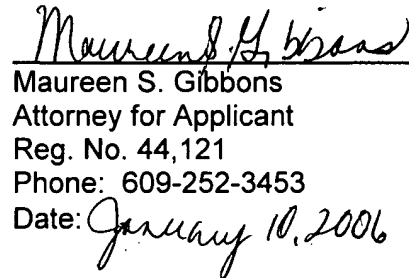 Maureen S. Gibbons
Maureen S. Gibbons
Attorney for Applicant
Reg. No. 44,121
Phone: 609-252-3453
Date: January 10, 2006